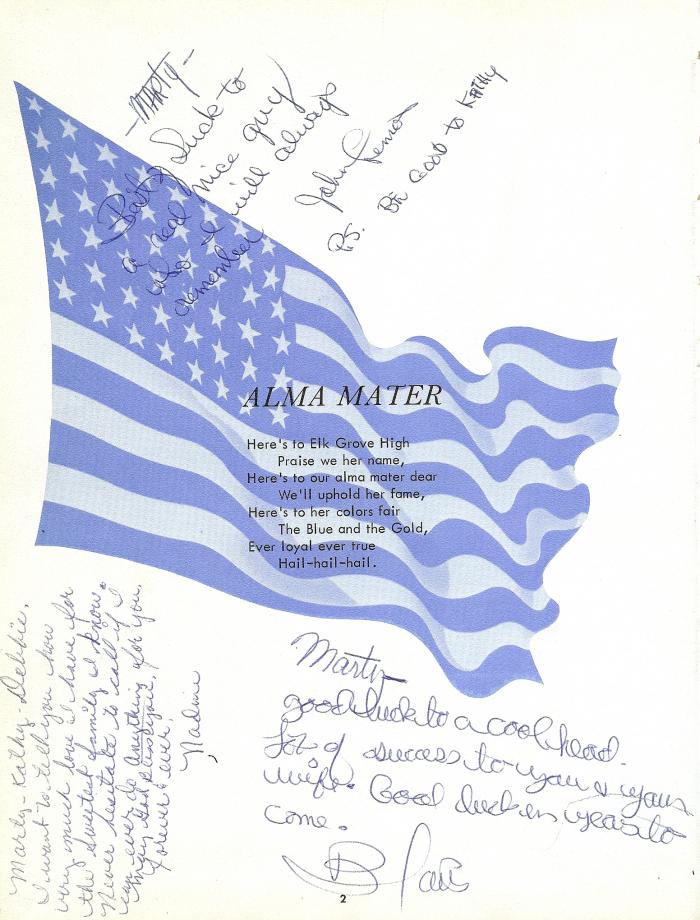 -MARTY-
Best Luck to
a real nice guy
who I will always
remember
John
P.S. BE GOOD to KATHY
ALMA MATER
Here's to Elk Grove High
Praise we her name,
Here's to our alma mater dear
We'll uphold her fame,
Here's to her colors fair
The Blue and the Gold,
Ever loyal ever true
Hail-hail-hail.
Marty-Kathy, Debbie,
I want to tell you how
very much love I have for
the sweetest family I know.
Never hesitate to call if I
can ever do anything for you.
May God bless you,
forever & ever.
Nadine
Marty-
good luck to a cool head.
Lots of success to you & your
wife. Good luck in years to
come.
Blair
2